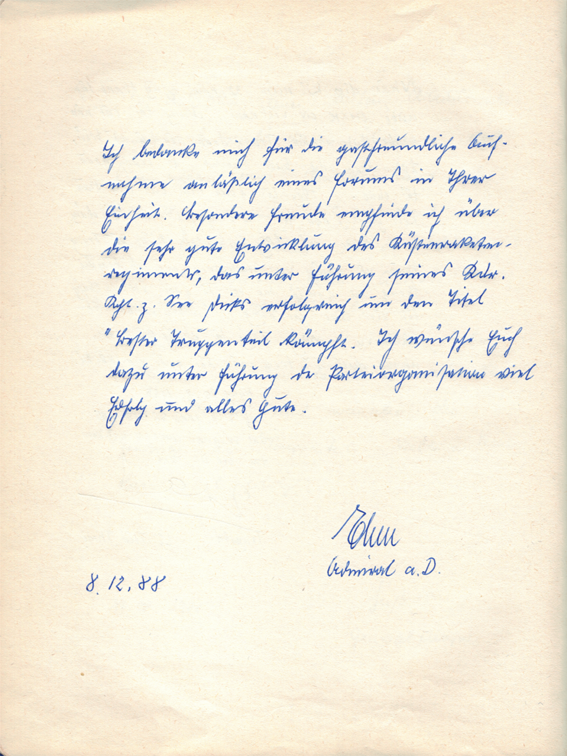 Ich bedanke mich für die gastfreundliche Auf-
nahme anläßlich eines Forums in Ihrer
Einheit. Besondere Freude empfinde ich über
die sehr gute Entwicklung des Küstenraketen-
regiments, das unter Führung seines Kdr.
Kpt. z. See Dicks erfolgreich um den Titel
"Bester Truppenteil kämpft. Ich wünsche Euch
dazu unter Führung de Parteiorganisation viel
Erfolg und alles Gute.
Ehm
Admiral a.D.
8.12.88